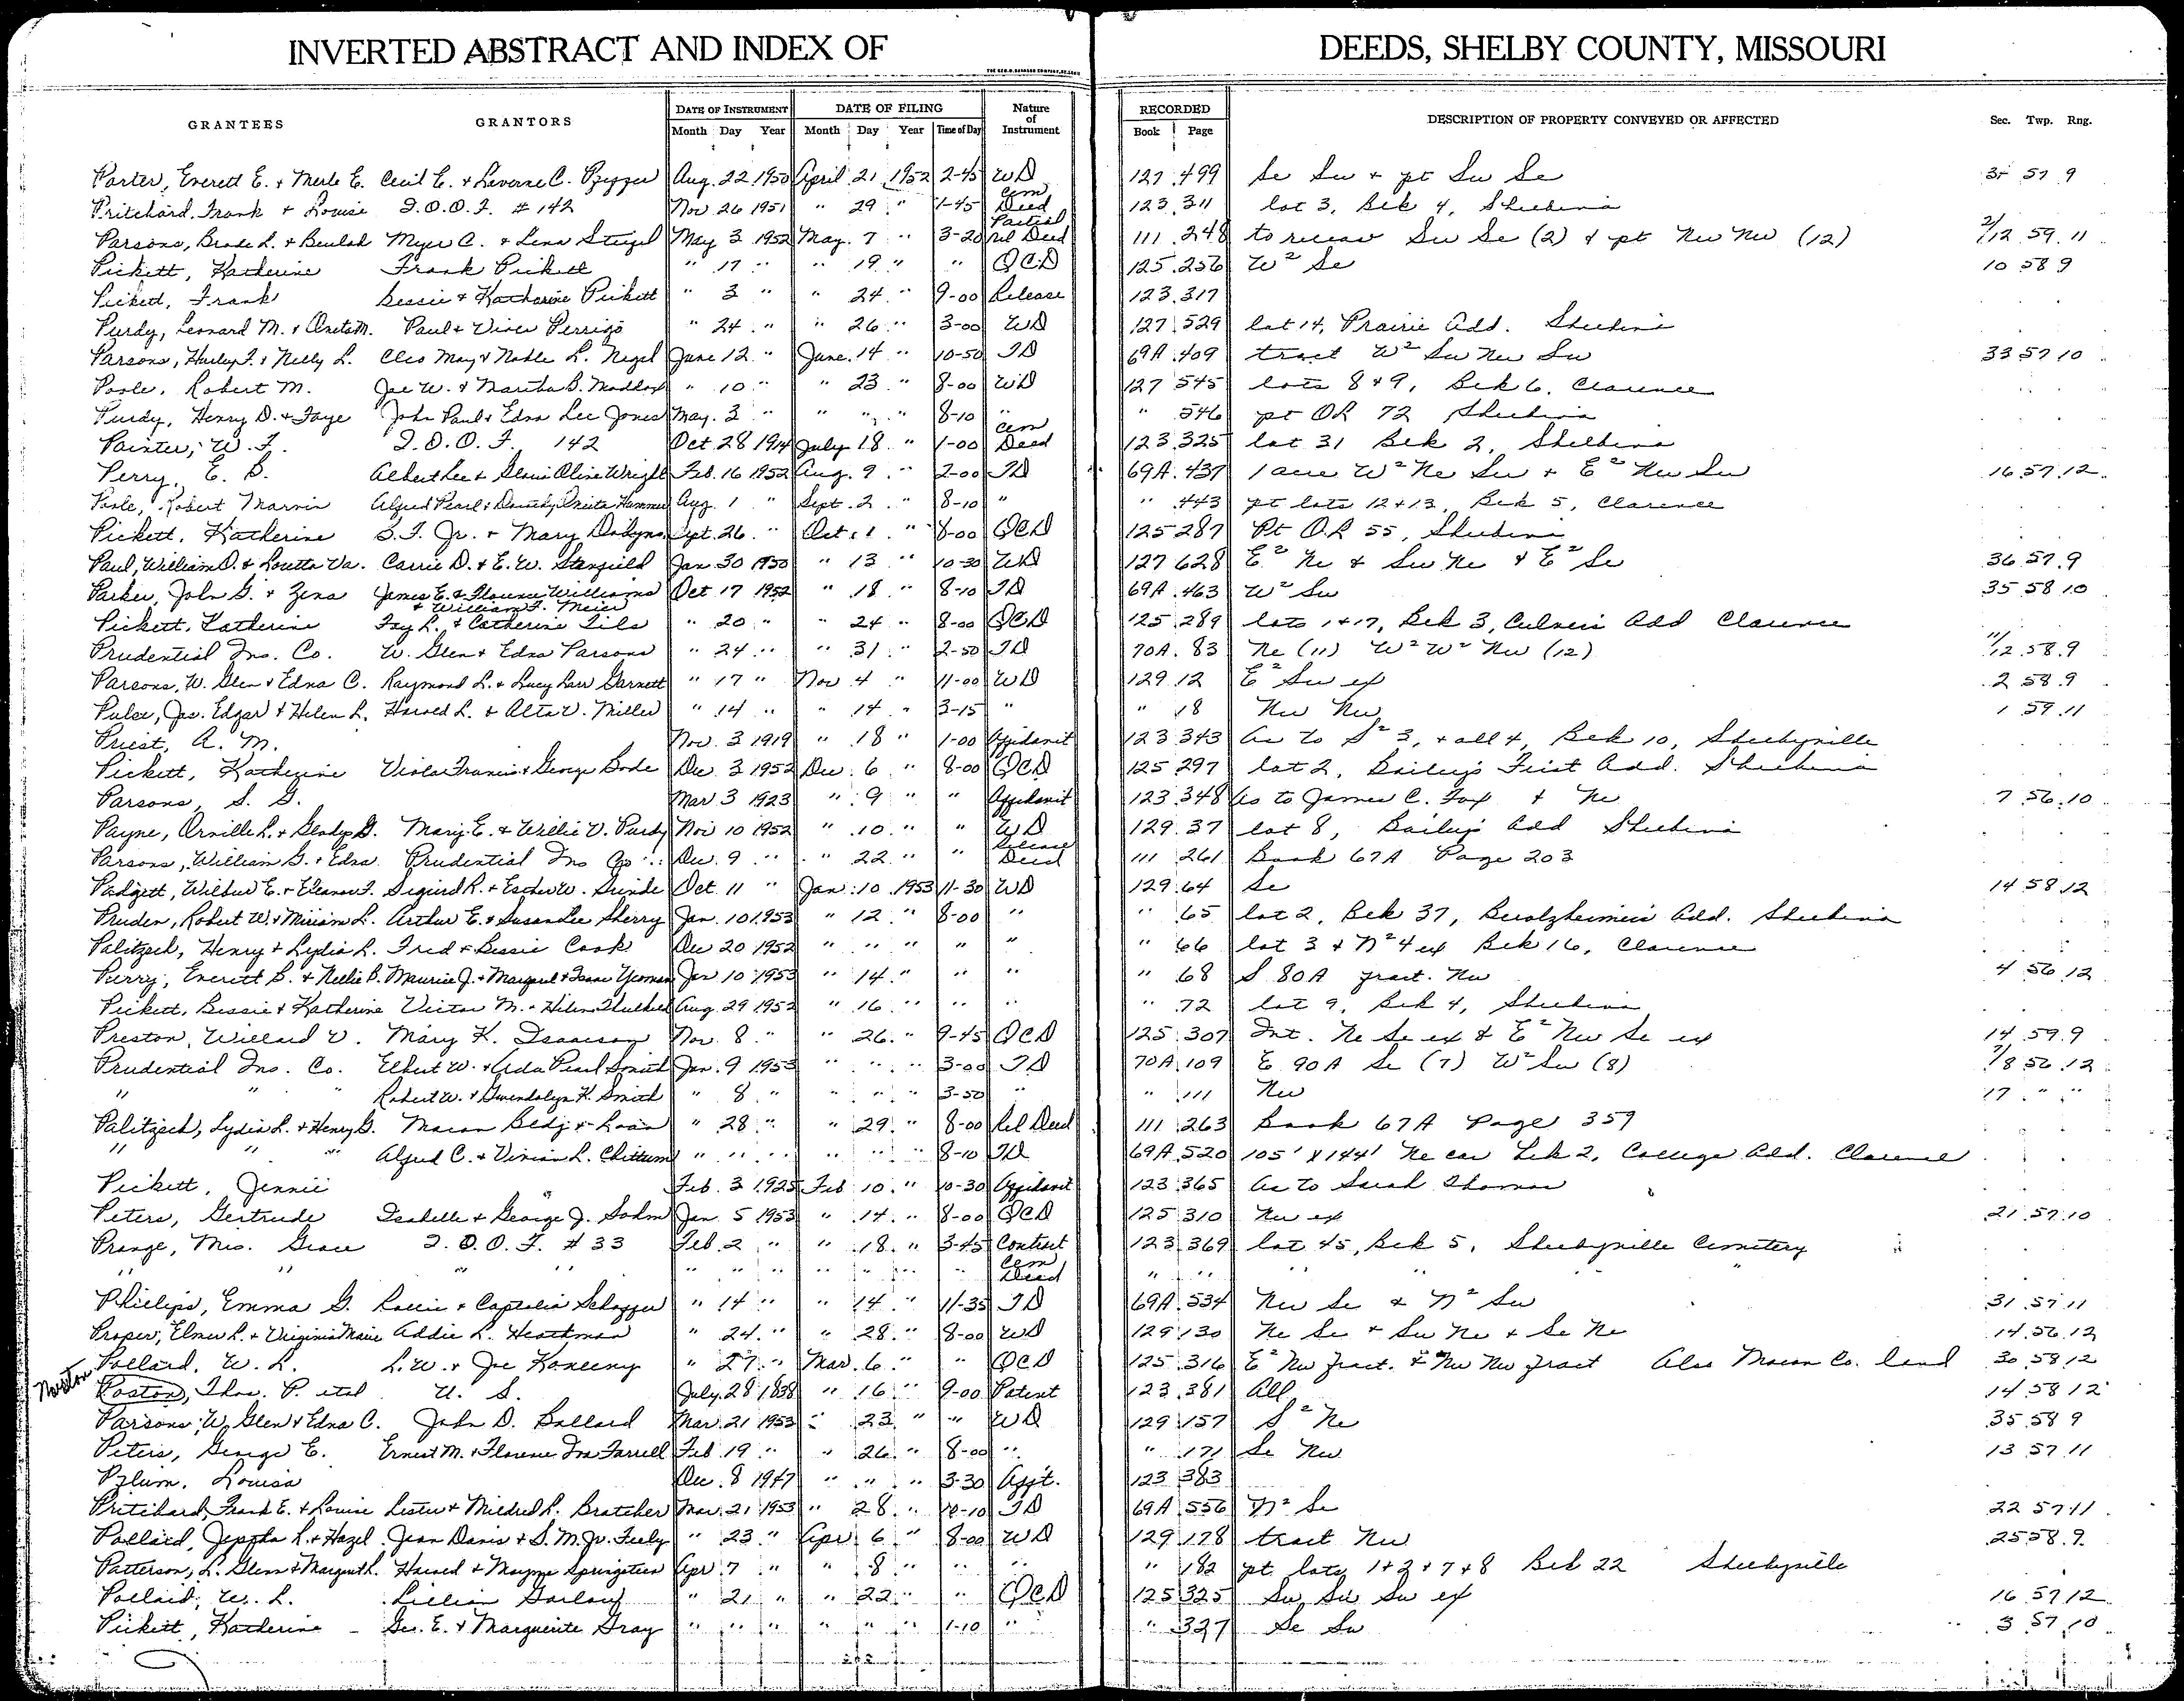 INVERTED ABSTRACT AND INDEX OF DEEDS, SHELBY COUNTY, MISSOURI
GRANTEES GRANTORS DATE OF INSTRUMENT DATE OF FILING Nature of Instrument RECORDED DESCRIPTION OF PROPERTY CONVEYED OR AFFECTED Sec. Twp. Rng.
Month Day Year Month Day Year Time of Day Book Page
Porter, Everett E. & Merle E. Cecil C. & Laverne C. Aug. 22 1950 April 21 1952 2-45 WD 127 499 Se Sw & pt Sw Se 57 9
Pritchard, Frank & Louise I.O.O.F. # 142 Nov 26 1951 " 29 " 1-45 Cem Deed 123 311 lot 3, Blk 4, Shelbina
Parsons, & Beulah Myer C. & Lena May 3 1952 May 7 " 3-20 Partial Rel Deed 111 248 to Sw Se (2) & pt Nw Nw (12) 2/12 59 11
Pickett, Katherine Frank Pickett " 17 " " 19 " " QCD 125 256 W² Se 10 58 9
Pickett, Frank Bessie & Katharine Pickett " 3 " " 24 " 9-00 Release 123 317
Purdy, Leonard M. & Paul & Perrigo " 24 " " 26 " 3-00 WD 127 529 lot 14, Prairie Add. Shelbina
Parsons, Harley F. & Nelly L. Cleo May & Noble L. Nagel June 12 " June 14 " 10-50 TD 69A 409 tract W² Sw Nw Sw 33 57 10
Poole, Robert M. Joe W. & Martha B. Maddox " 10 " " 23 " 8-00 WD 127 545 lots 8 & 9, Blk 6, Clarence
Purdy, Henry D. & Faye John Paul & Edna Lee Jones May 3 " " " " 8-10 " " 546 pt OL 72 Shelbina
Painter, W. F. I.O.O.F. 142 Oct 28 1914 July 18 " 1-00 Cem Deed 123 325 lot 31 Blk 2, Shelbina
Perry, E. B. Albert Lee & Wright Feb. 16 1952 Aug. 9 " 2-00 TD 69A 437 1 acre W² Ne Sw & E² Nw Sw 16 57 12
Poole, Robert Marvin Alfred Pearl & Hammer Aug. 1 " Sept. 2 " 8-10 " " 443 pt lots 12 & 13, Blk 5, Clarence
Pickett, Katherine B. F. Jr. & Mary Dobyns Sept. 26 " Oct 1 " 8-00 QCD 125 287 Pt OL 55, Shelbina
Paul, William D. & Loutta Va. Carrie D. & E. W. Stanfield Jan 30 1950 " 13 " 10-30 WD 127 628 E² Ne & Sw Ne & E² Se 36 57 9
Parker, John G. & Zena James E. & Florence Williams Oct 17 1952 " 18 " 8-10 TD 69A 463 W² Sw 35 58 10
& William F. Meier
Pickett, Katherine Fay L. & Catherine " 20 " " 24 " 8-00 QCD 125 289 lots 1 & 17, Blk 3, Culver's Add Clarence
Prudential Ins. Co. W. Glen & Edna Parsons " 24 " " 31 " 2-50 TD 70A 83 Ne (11) W² W² Nw (12) 11/12 58 9
Parsons, W. Glen & Edna C. Raymond L. & Lucy Garnett " 17 " Nov 4 " 11-00 WD 129 12 E² Sw ex 2 58 9
Jas. Edgar & Helen L. Harold L. & Alta V. Miller " 14 " " 14 " 3-15 " " 18 Nw Nw 1 59 11
Priest, A. M. Nov. 3 1919 " 18 " 1-00 Affidavit 123 343 As to S² 3, & all 4, Blk 10, Shelbyville
Pickett, Katherine Viola Francis & George Bode Dec 3 1952 Dec. 6 " 8-00 QCD 125 297 lot 2, Bailey's First Add. Shelbina
Parsons, S. G. Mar 3 1923 " 9 " " Affidavit 123 348 As to James C. Fox & Ne 7 56 10
Payne, Orville L. & Gladys G. Mary E. & Willie V. Purdy Nov 10 1952 " 10 " " WD 129 37 lot 8, Bailey's Add Shelbina
Parsons, William G. & Edna Prudential Ins Co Dec. 9 " " 22 " " Release Deed 111 261 Book 67A Page 203
Padgett, Wilbur E. & Eleanor F. Sigurd R. & Esther W. Sunde Oct. 11 " Jan. 10 1953 11-30 WD 129 64 Se 14 58 12
Pruden, Robert W. & Miriam L. Arthur E. & Susan Lee Sherry Jan. 10 1953 " 12 " 8-00 " " 65 lot 2, Blk 37, Add. Shelbina
Palitzsch, Henry & Lydia L. Fred & Bessie Cook Dec 20 1952 " " " " " " 66 lot 3 & N² 4 ex Blk 16, Clarence
Perry, Everett B. & Nellie B. Maurice J. & Margaret & Isaac Yeoman Jan 10 1953 " 14 " " " " 68 S 80A fract. Nw 4 56 12
Pickett, Bessie & Katherine Victor M. & Helen Aug. 29 1952 " 16 " " " " 72 lot 9, Blk 4, Shelbina
Preston, Willard V. Mary K. Isaacson Nov. 8 " " 26 " 9-45 QCD 125 307 Int. Ne Se ex & E² Nw Se ex 14 59 9
Prudential Ins. Co. Elbert W. & Ada Pearl Smith Jan. 9 1953 " " " 3-00 TD 70A 109 E 90A Se (7) W² Sw (8) 7/8 56 12
" " " Robert W. & Gwendolyn K. Smith " 8 " " " " 3-50 " " 111 Nw 17 " "
Palitzsch, Lydia L. & Henry G. Macon Bldg & Loan " 28 " " 29 " 8-00 Rel Deed 111 263 Book 67A Page 359
" " " Alfred C. & Vivian L. Chittum " " " " " " 8-10 TD 69A 520 105' X 144' Ne cor Blk 2, College Add. Clarence
Pickett, Jennie Feb. 3 1925 Feb 10 " 10-30 Affidavit 123 365 As to Sarah Thomas
Peters, Gertrude Isabelle & George J. Sohm Jan 5 1953 " 14 " 8-00 QCD 125 310 Nw ex 21 57 10
Prange, Mrs. Grace I.O.O.F. # 33 Feb. 2 " " 18 " 3-45 Contract 123 369 lot 45, Blk 5, Shelbyville Cemetery
" " " " " " " " " " " Cem Deed " " " "
Phillips, Emma G. & Captolia " 14 " " 14 " 11-35 TD 69A 534 Nw Se & N² Sw 31 57 11
Proper, Elmer L. & Virginia Marie Addie L. Heathman " 24 " " 28 " 8-00 WD 129 130 Ne Se & Sw Ne & Se Ne 14 56 12
Pollard, W. L. L. W. & Joe Konecny " 27 " Mar. 6 " " QCD 125 316 E² Nw fract. & Nw Nw fract Also Macon Co. land 30 58 12
Norton
Poston, Thos. P. etal U. S. July 28 1838 " 16 " 9-00 Patent 123 381 All 14 58 12
Parsons, W. Glen & Edna C. John D. Ballard Mar. 21 1953 " 23 " " WD 129 157 S² Ne 35 58 9
Peters, George E. Ernest M. & Florence Ina Farrell Feb 19 " " 26 " 8-00 " " 171 Se Nw 13 57 11
Pflum, Louisa Dec. 8 1947 " " " 3-30 Afft. 123 383
Pritchard, Frank E. & Louise Lester & Mildred L. Bratcher Mar. 21 1953 " 28 " 10-10 TD 69A 556 N² Se 22 57 11
Pollard, Jeptha L. & Hazel Jean Davis & S. M. Jr. Feely " 23 " Apr 6 " 8-00 WD 129 178 tract Nw 25 58 9
Patterson, L. Glenn & Margaret L. Harold & Springsteen Apr. 7 " " 8 " " " " 182 pt lots 1 & 2 & 7 & 8 Blk 22 Shelbyville
Pollard, W. L. Lillian " 21 " " 22 " " QCD 125 325 Sw Sw Sw ex 16 57 12
Pickett, Katherine Geo. E. & Marguerite Gray " " " " " " 1-10 " " 327 Se Sw 3 57 10